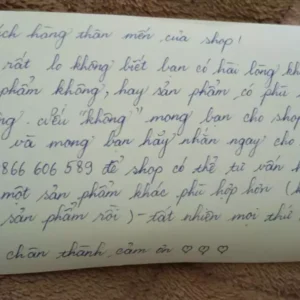 ích hàng thân mến của shop!
rất lo không biết bạn có hài lòng kh
phẩm không, hay sản phẩm có phù
ng. Nếu "không" mong bạn cho shop
và mong bạn hãy nhắn ngay cho
866 606 589 để shop có thể tư vấn h
một sản phẩm khác phù hợp hơn (k
sản phẩm rồi) - tất nhiên mọi thứ
chân thành cảm ơn ♡ ♡ ♡